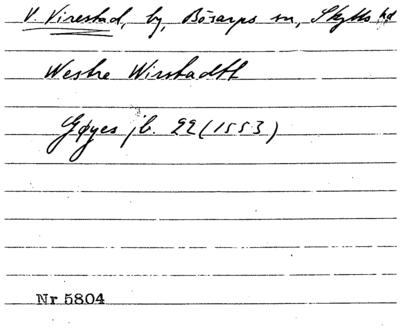 V. Virestad, by, Bösarps sn, Skytts hd
Westre Wirstadtt
Gøyes jb. 22 (1553)
Nr 5804